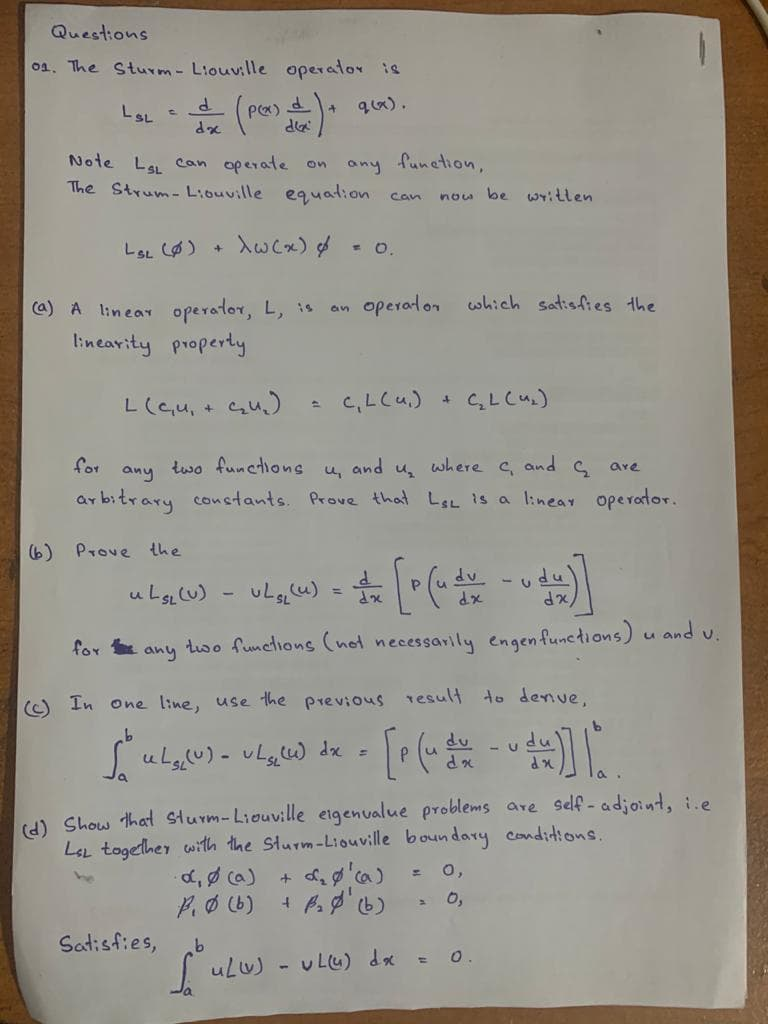 Questions
01. The Sturm-Liouville operator is
L_SL = d/dx (p(x) d/dx) + q(x).
Note L_SL can operate on any function,
The Strum-Liouville equation can now be written
L_SL (ϕ) + λω(x) ϕ = 0.
(a) A linear operator, L, is an operator which satisfies the
linearity property
L(c₁u₁ + c₂u₂) = c₁L(u₁) + c₂L(u₂)
for any two functions u₁ and u₂ where c₁ and c₂ are
arbitrary constants. Prove that L_SL is a linear operator.
(b) Prove the
u L_SL(v) - v L_SL(u) = d/dx [p (u dv/dx - v du/dx)]
for any two functions (not necessarily engenfunctions) u and v.
(c) In one line, use the previous result to derive,
∫_a^b u L_SL(v) - v L_SL(u) dx = [p (u dv/dx - v du/dx)] |_a^b.
(d) Show that Sturm-Liouville eigenvalue problems are self-adjoint, i.e
L_SL together with the Sturm-Liouville boundary conditions.
α₁ϕ(a) + α₂ϕ'(a) = 0,
β₁ϕ(b) + β₂ϕ'(b) = 0,
Satisfies,
∫_a^b uL(v) - vL(u) dx = 0.